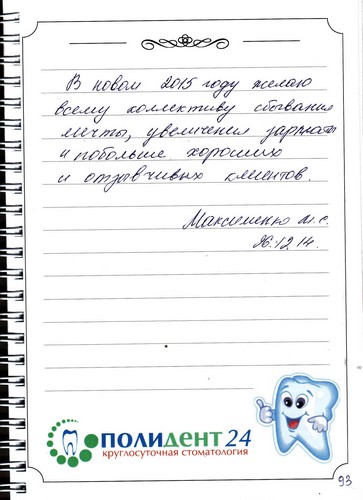 В новом 2015 году желаю
всему коллективу сбывания
мечты, увеличения зарплаты
и побольше хороших
и отзывчивых клиентов.
Максименко М.С.
26.12.14.
ПОЛИДЕНТ 24
круглосуточная стоматология
93